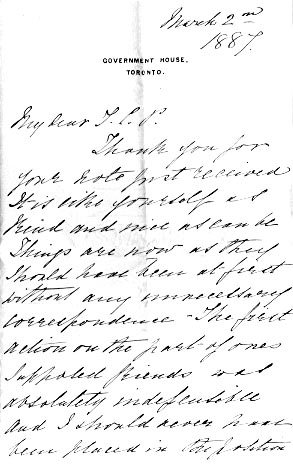 March 2nd
1887.
GOVERNMENT HOUSE,
TORONTO.
My dear T. C. P.
Thank you for
your note just received
It is like yourself as
kind and nice as can be
Things are now as they
should have been at first
without any unnecessary
correspondence - The first
action on the part of ones
supposed friends was
absolutely indefensible
and I should never have
been placed in the position